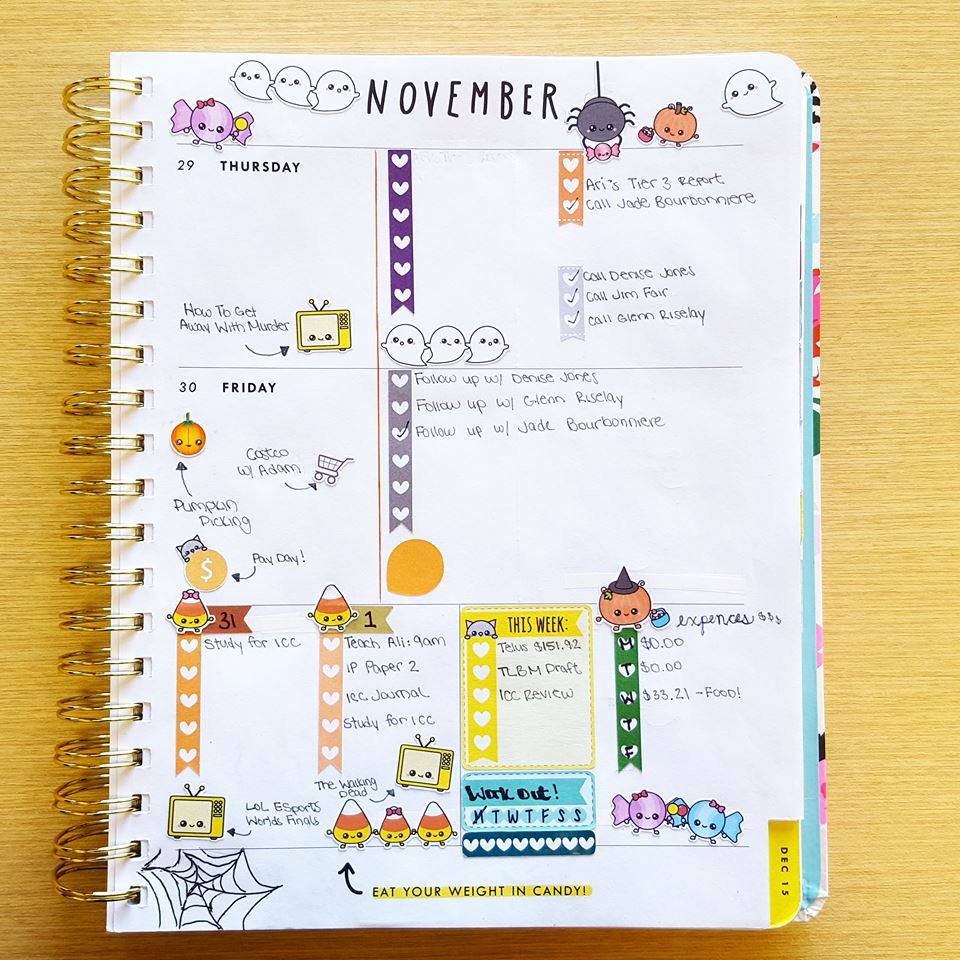 NOVEMBER
29 THURSDAY
Ari's Tier 3 Report
Call Jade Bourbonniere
Call Denise Jones
Call Jim Fair
Call Glenn Riselay
How To Get
Away With Murder
30 FRIDAY
Follow up w/ Denise Jones
Follow up w/ Glenn Riselay
Follow up w/ Jade Bourbonniere
Costco
w/ Adam
Pumpkin
Picking
$
Pay Day!
31
Study for ICC
LoL ESports
Worlds Finals
1
Teach Ali: 9am
IP Paper 2
ICC Journal
Study for ICC
The Walking
Dead
THIS WEEK:
Telus $151.92
TLBM Draft
ICC Review
Work out!
M T W T F S S
expences $$$
M $0.00
T $0.00
W $33.21 - Food!
T
F
EAT YOUR WEIGHT IN CANDY!
DEC 15